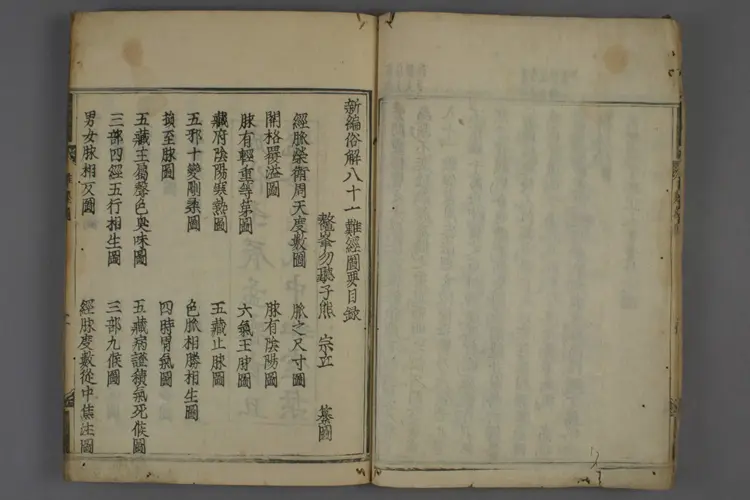 新編俗解八十一難經圖要目録
鰲峯勿聽子熊 宗立 纂圖
經脉榮衛周天度數圖 脉之尺寸圖
關格覆溢圖 脉有陰陽圖
脉有輕重等第圖 六氣王脉圖
藏府陰陽寒熱圖 五藏止脉圖
五邪十變剛柔圖 色脉相勝相生圖
損至脉圖 四時胃氣圖
五藏主屬聲色臭味圖 五藏病證積氣死候圖
三部四經五行相生圖 三部九候圖
男女脉相反圖 經脉度數從中焦注圖